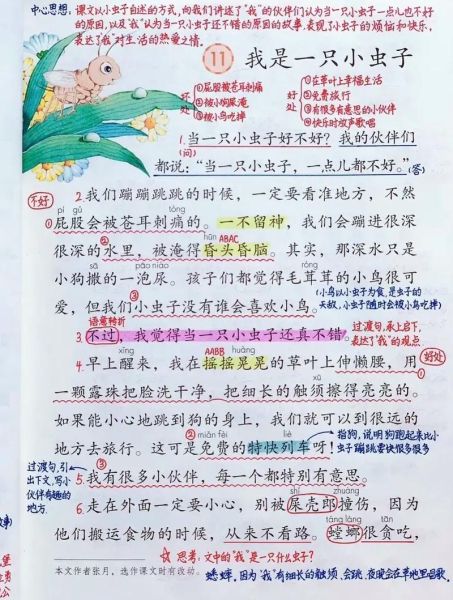 中心思想:课文以小虫子自述的方式,向我们讲述了"我"的伙伴们认为当一只小虫子一点儿也不好
的原因,以及"我"认为当一只小虫子还不错的原因的故事,表现了小虫子的烦恼和快乐,
表达了"我"对生活的热爱之情。
11 我是一只小虫子
坏处
①屁股被苍耳刺痛
②被小狗尿淹
③被小鸟吃掉
好处
①在草叶上幸福生活
②免费旅行
③有很多有意思的小伙伴
④快乐时放声歌唱
1.当一只小虫子好不好?我的伙伴们
(问)
都说:"当一只小虫子,一点儿都不好。"(答)
不好
2.我们蹦蹦跳跳的时候,一定要看准地方,不然
①
pì gu tòng
屁股会被苍耳刺痛的。一不留神,我们会蹦进很深
② hūn ABAC
很深的水里,被淹得昏头昏脑。其实,那深水只是
sā pāo niào róng
小狗撒的一泡尿。孩子们都觉得毛茸茸的小鸟很可
③
爱,但我们小虫子没有谁会喜欢小鸟。
(小鸟以小虫子为食,是虫子的
天敌,小虫子随时会被小鸟吃掉)
语意转折
3.不过,我觉得当一只小虫子还真不错。
过渡句,承上启下,
表达了"我"的观点
xǐng AABB huàng
4.早上醒来,我在摇摇晃晃的草叶上伸懒腰,用
好处
①
xū
一颗露珠把脸洗干净,把细长的触须擦得亮亮的。
如果能小心地跳到狗的身上,我们就可以到很远的
② miǎn fèi liè
地方去旅行。这可是免费的特快列车呀!
指狗,说明狗跑起来比小
虫子蹦跳要快很多很多
过渡句,引
出下文,写小
伙伴有趣的
地方
③
5.我有很多小伙伴,每一个都特别有意思。
shǐ zhuàng
6.走在外面一定要小心,别被屎壳郎撞伤,因为
他们搬运食物的时候,从来不看路。螳螂很贪吃,
táng láng tān
☆思考:文中的"我"是一只什么虫子?
本文作者张月,选作课文时有改动。
蟋蟀,因为"我"有细长的触须,会跳,夜晚会在草地里唱歌。